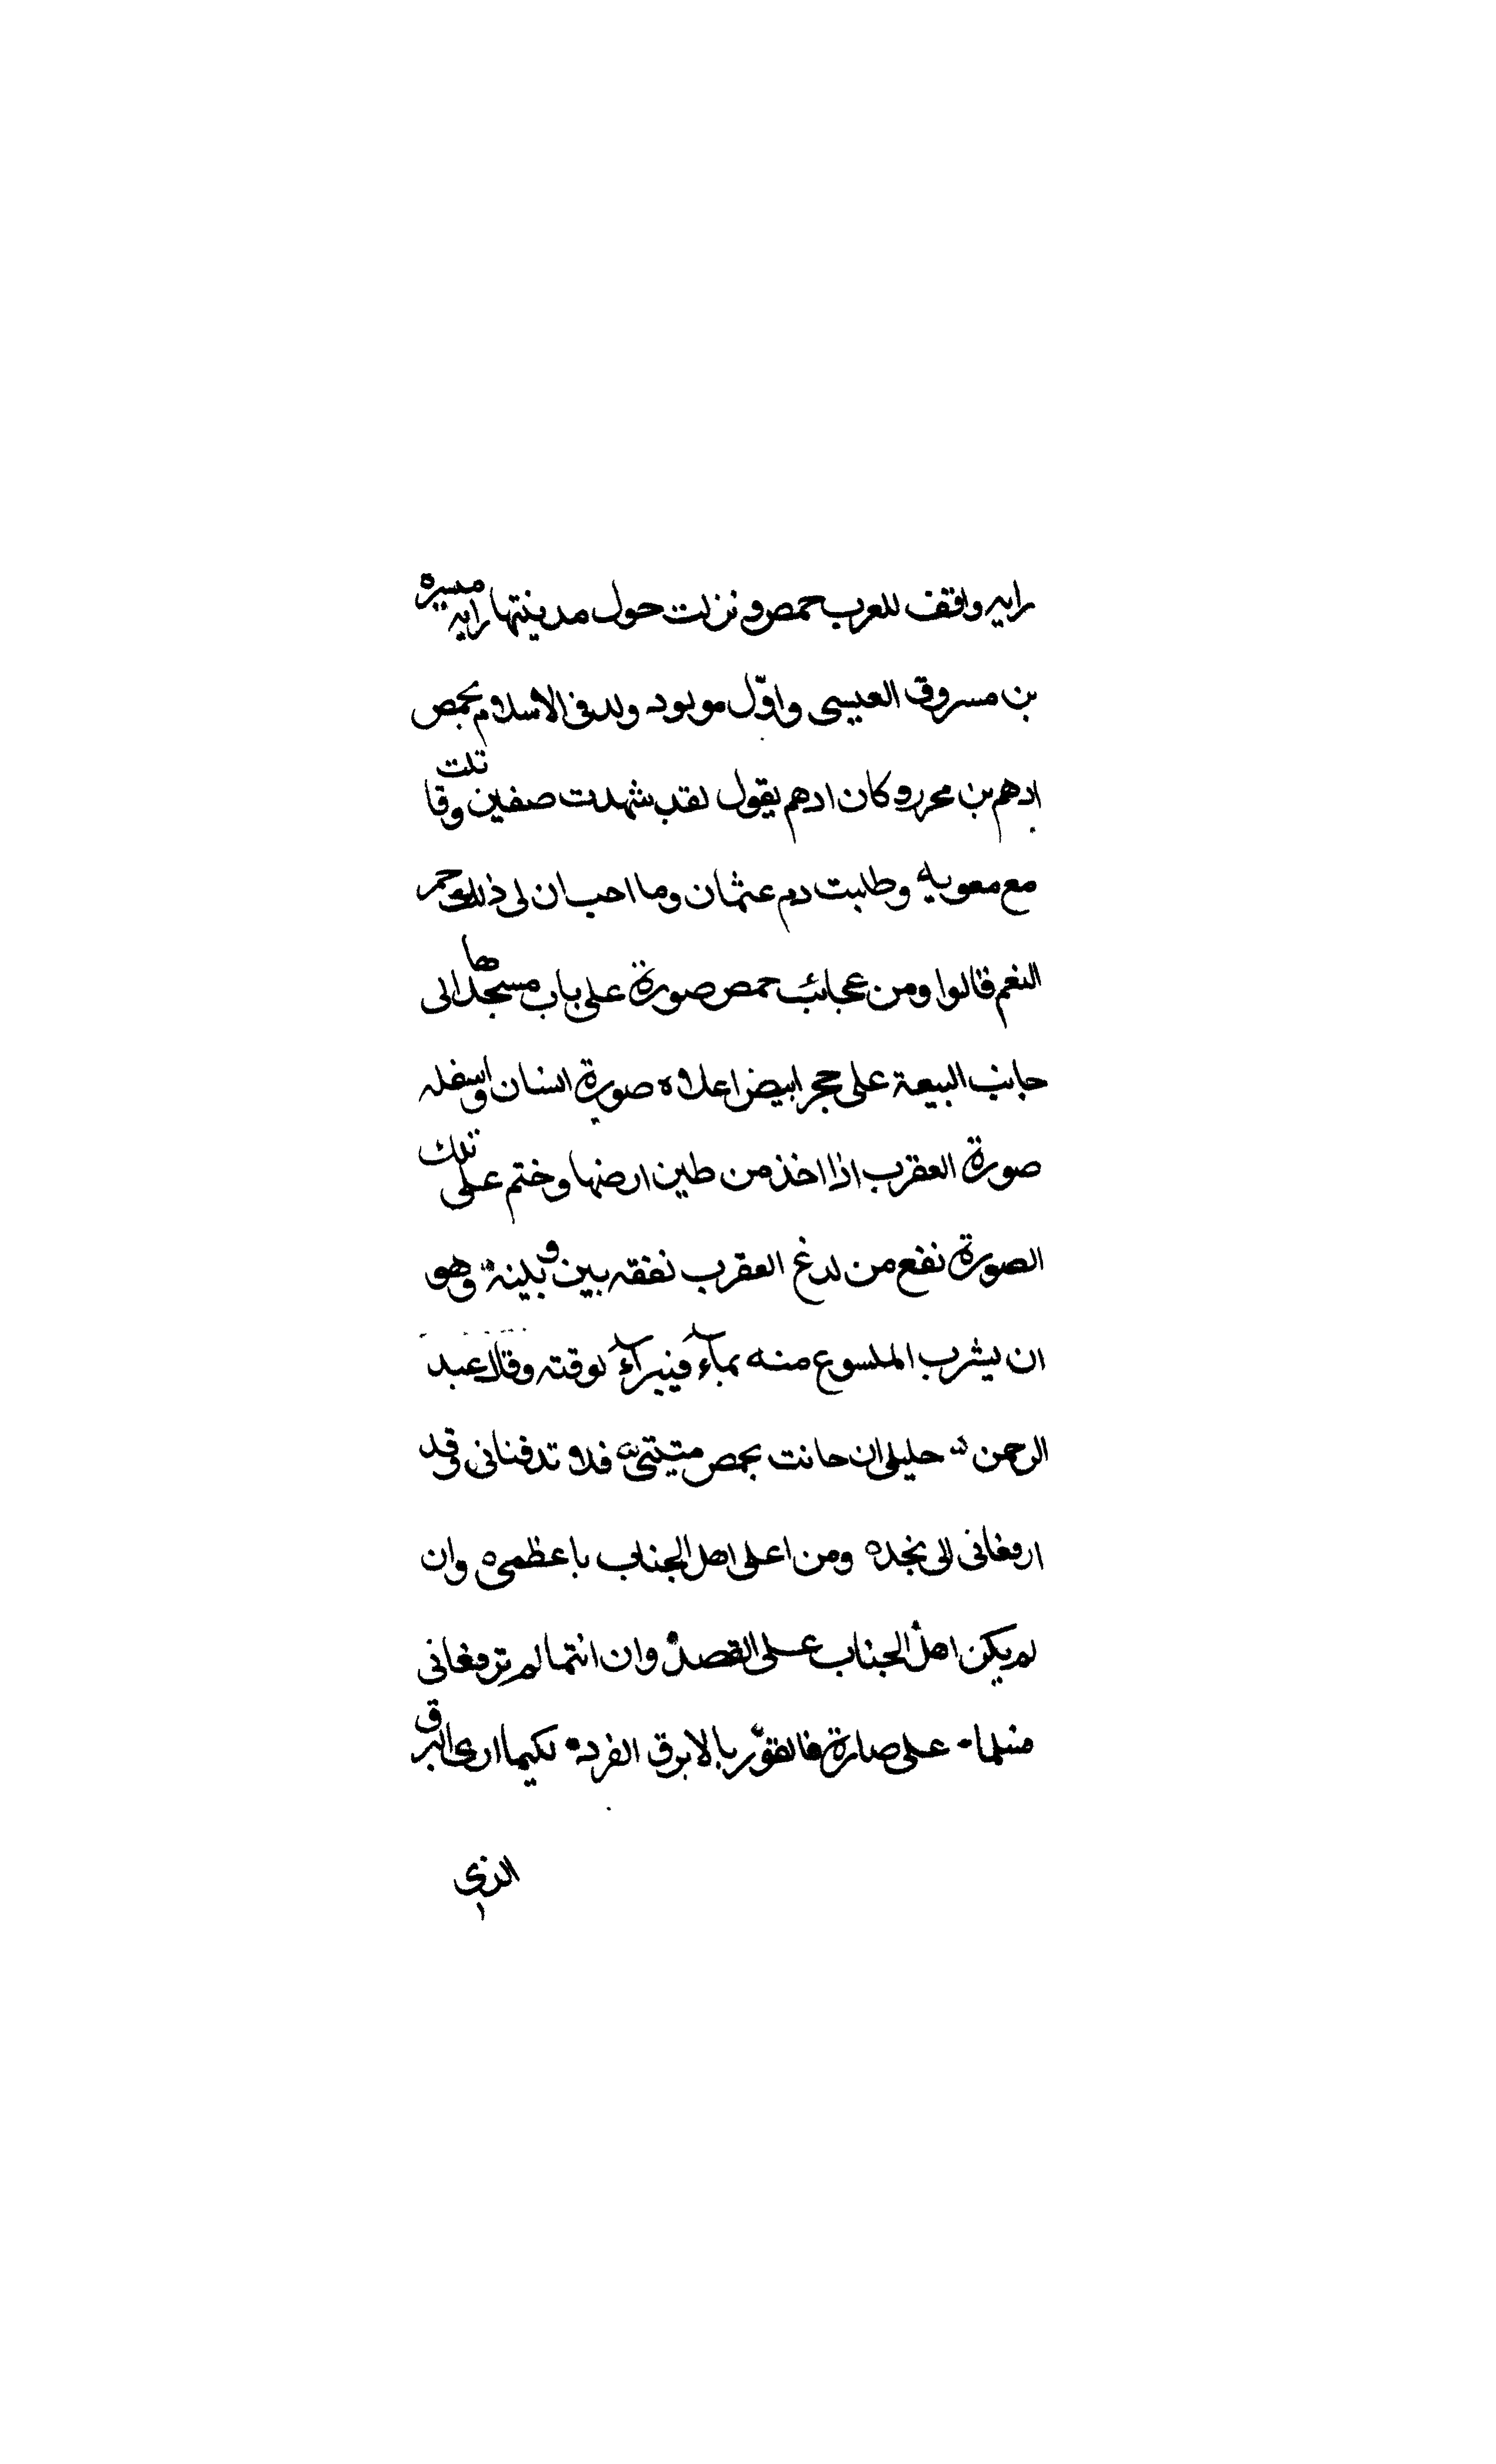 رايه واقف للعرب حمص ونزلت حول مدينتها رايه ميسره
بن مسروق العبسى واوّل مولود ولد فى الاسلام بحمص
ادهم بن محرر وكان ادهم يقول لقد شهدت صفين وقاتلت
مع معويه وطلبت دم عثمان وما احب ان لى ذلك حمر
النعم قالوا ومن عجائب حمص صورة على باب مسجدها الى
جانب البيعة على حجر ابيض اعلاه صورة انسان واسفله
صورة العقرب اذا اخذ من طين ارضها وختم على تلك
الصورة نفع من لدغ العقرب نفقه بين وبينه وهو
ان يشرب الملسوع منه بماء فيبرآء لوقته وقال عبد
الرحمن حليلى ان حانت بحمص ميتتى فلا تدفنانى وقد
ارفعانى الى نجده ومن اعلى اهل الجناب باعظمى وان
لم يكن اهل الجناب على القصد وان انتما لم ترفعانى
على صارة فالقوّر بالابرق الفرد لكيما ارى البرق
الذى